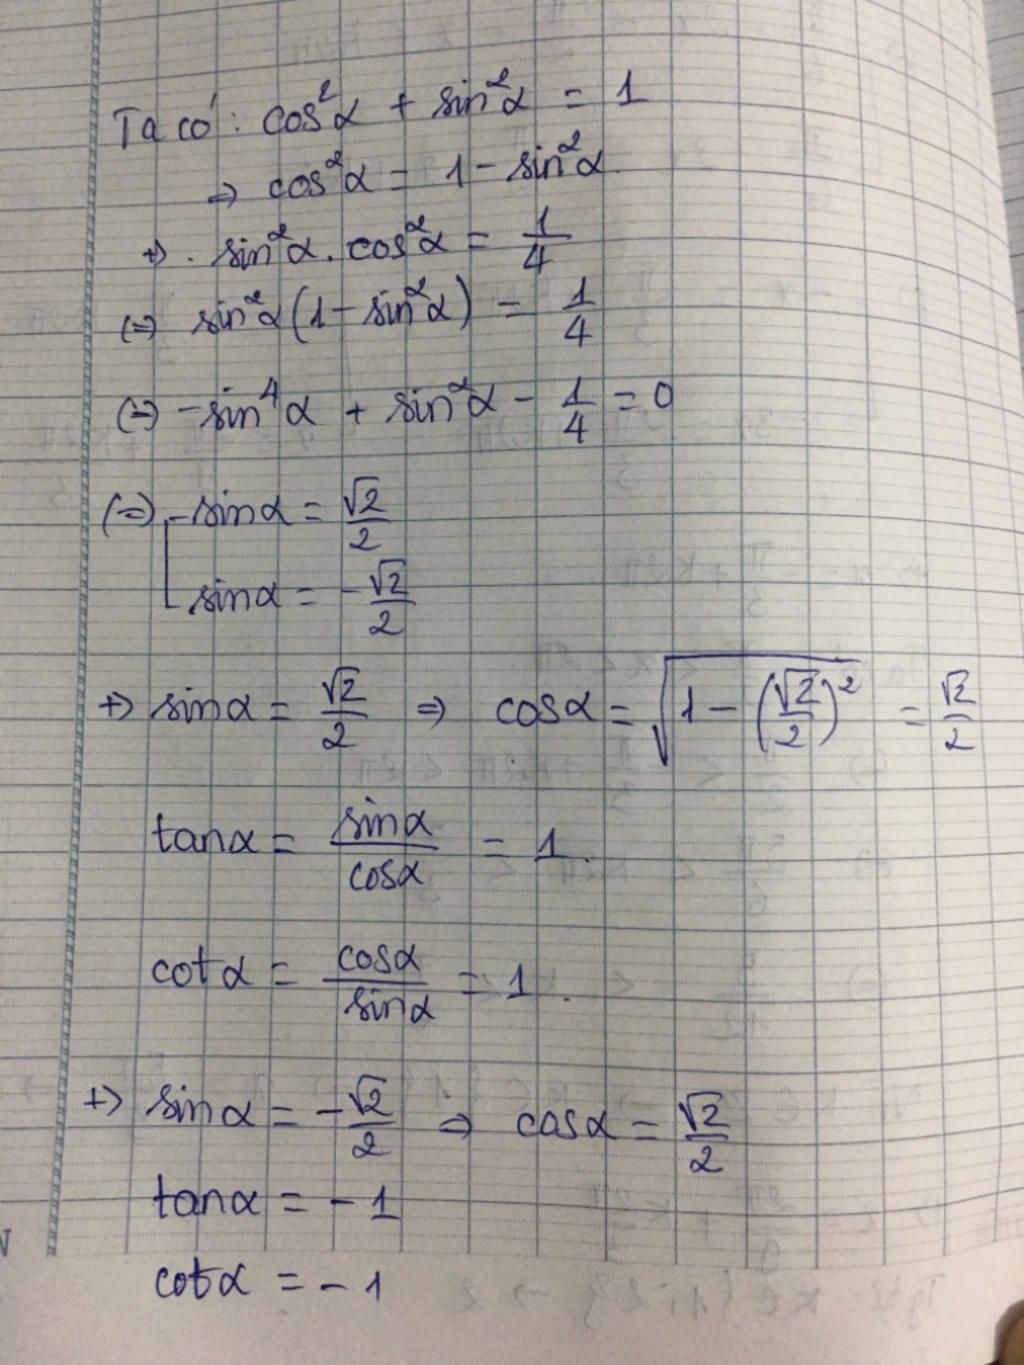 Ta có: cos²α + sin²α = 1
⇒ cos²α = 1 - sin²α
+) . sin²α . cos²α = 1/4
(=) sin²α (1 - sin²α) = 1/4
(=) -sin⁴α + sin²α - 1/4 = 0
(=) [ sinα = √2/2
sinα = -√2/2
+) sinα = √2/2 ⇒ cosα = √(1 - (√2/2)²) = √2/2
tanα = sinα/cosα = 1.
cotα = cosα/sinα = 1.
+) sinα = -√2/2 ⇒ cosα = √2/2
tanα = -1
cotα = -1